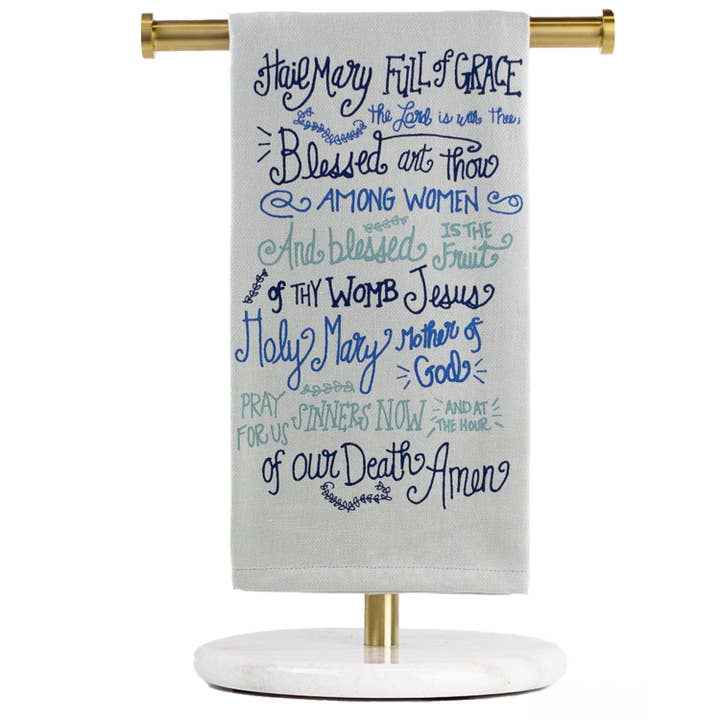 Hail Mary FULL of GRACE
the Lord is with thee,
Blessed art thou
AMONG WOMEN
And blessed IS THE Fruit
of THY WOMB Jesus
Holy Mary Mother of God
PRAY FOR US SINNERS NOW AND AT THE HOUR
of our Death Amen